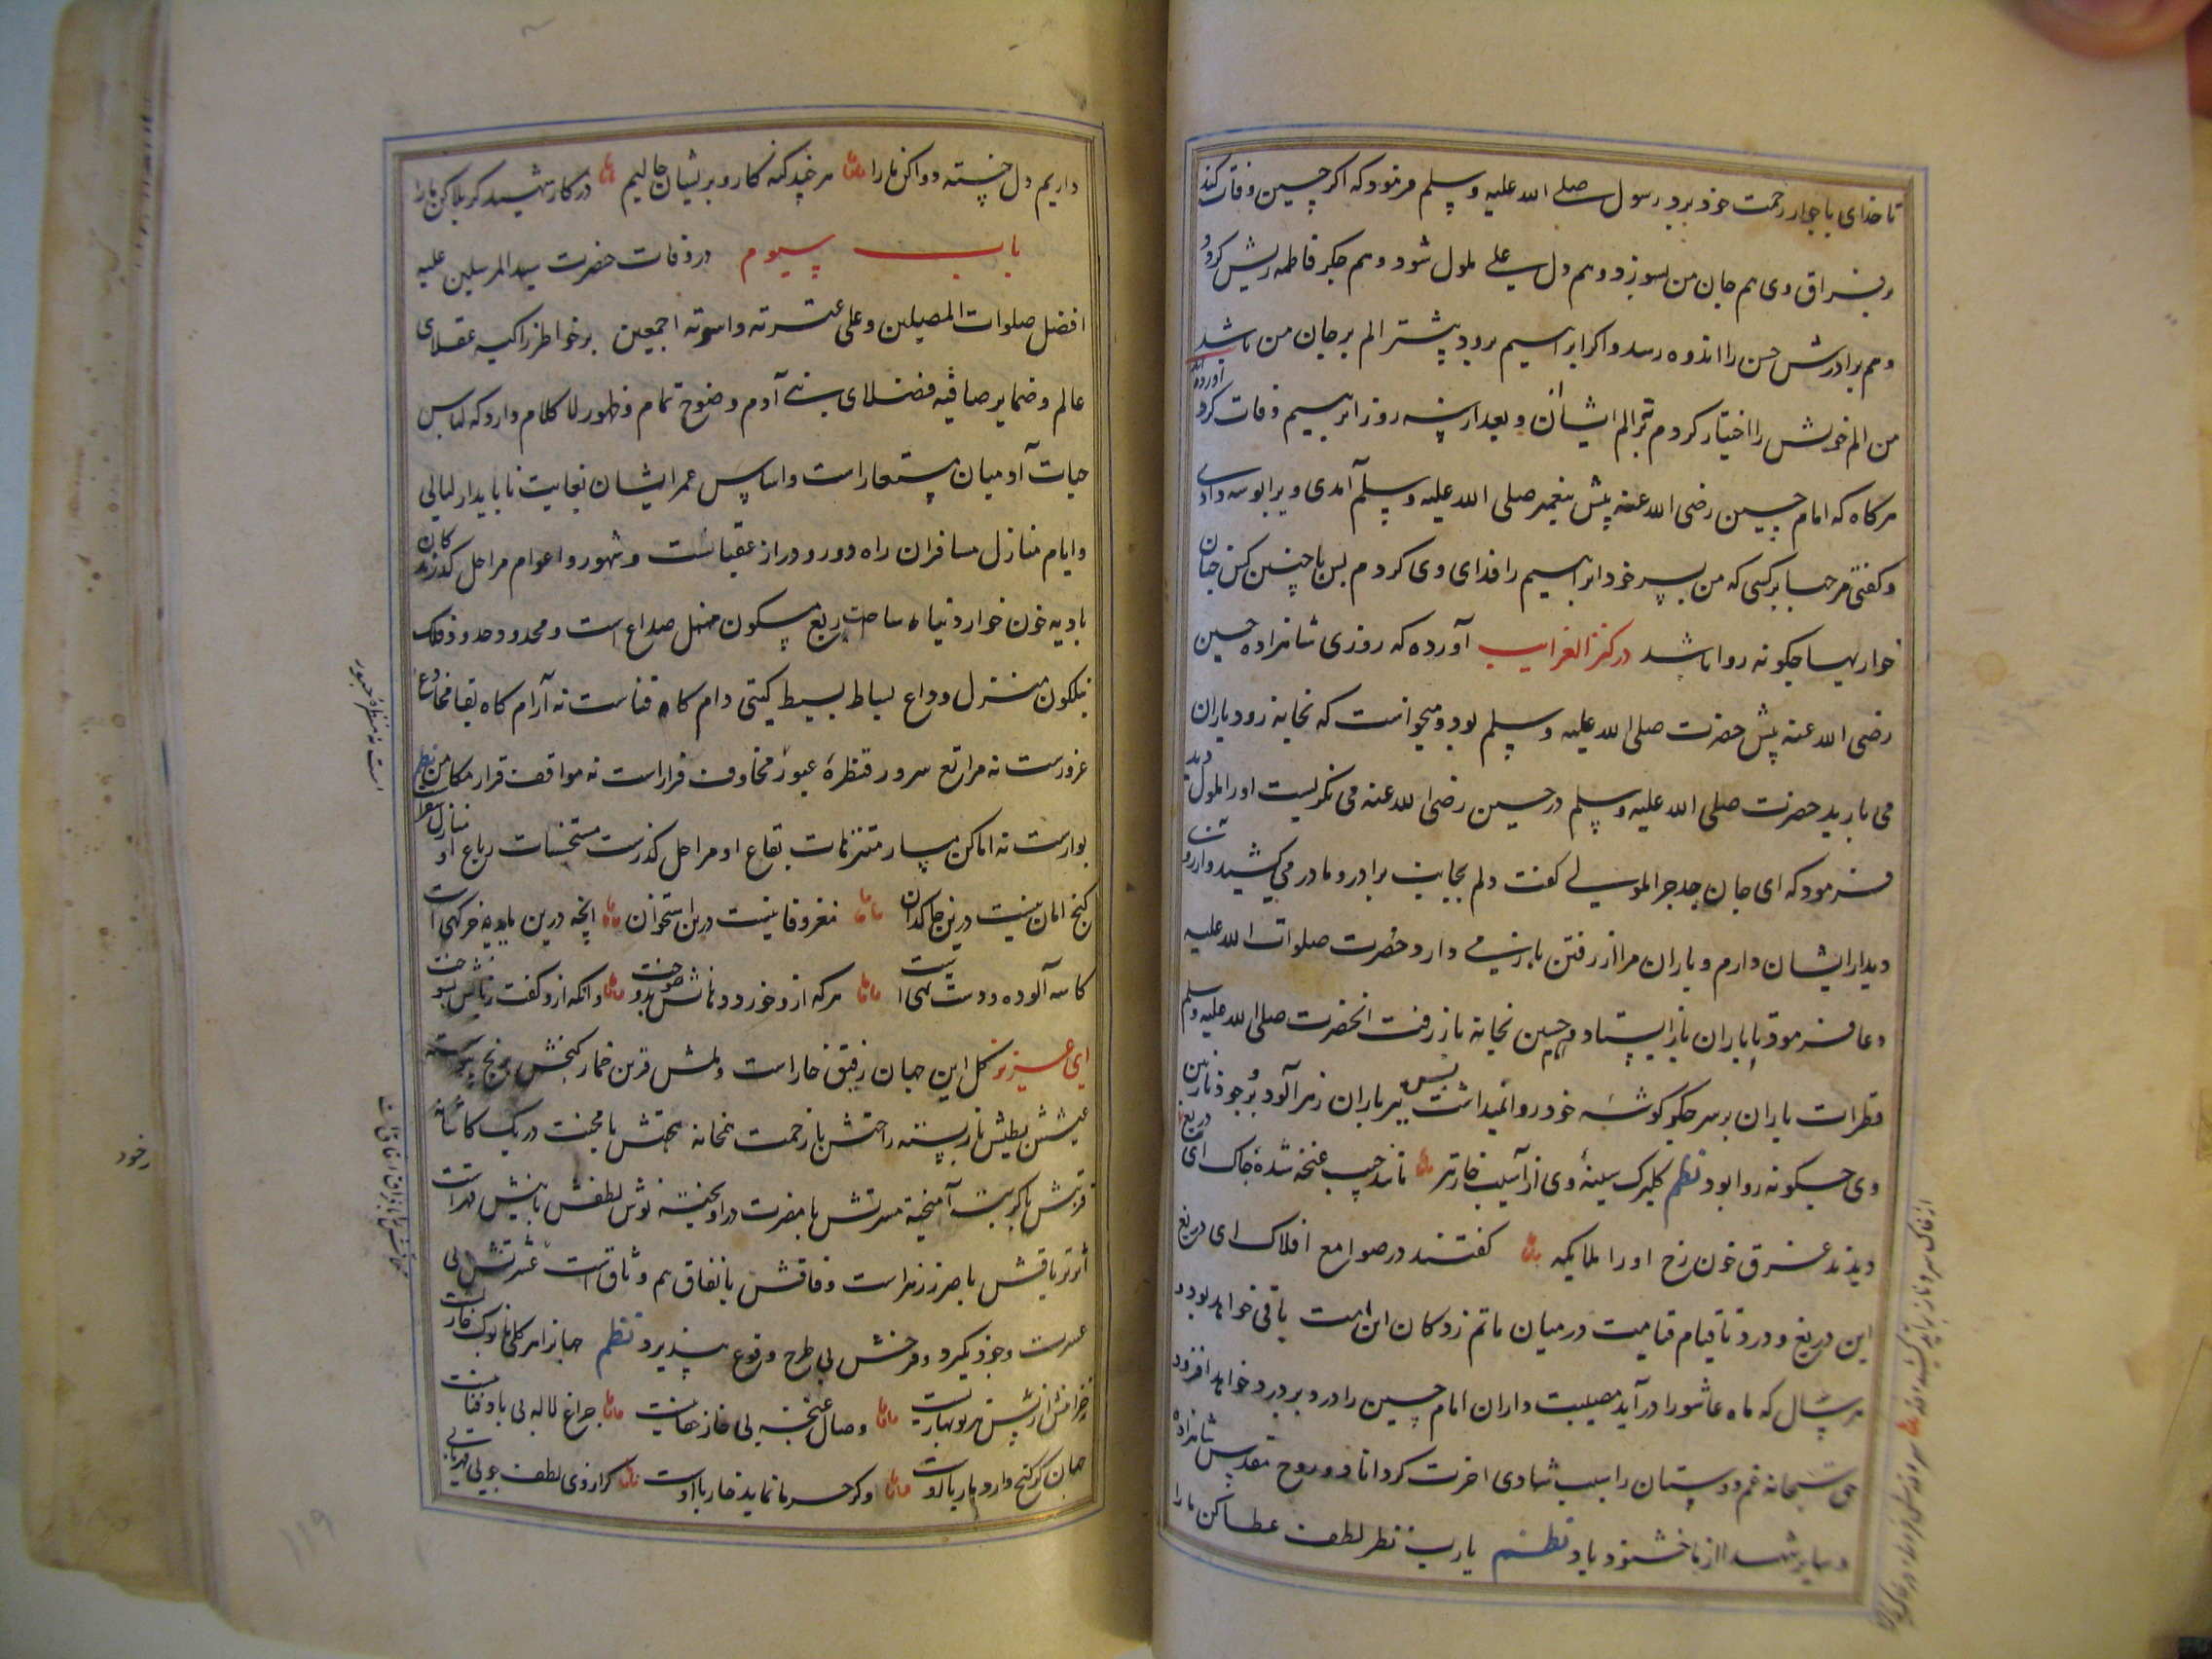 تا خدای با جوار رحمت خود برد رسول صلی الله علیه وسلم فرمود که اکر حسین وفات کند
بفراق وی هم جان من بسوزد و هم دل علی ملول شود و هم جکر فاطمه ریش کردد و
و هم برادرش حسن را اندوه رسد و اکر ابراهیم برود بیشتر الم بر جان من باشد
من الم خویش را اختیار کردم بر الم ایشان و بعد از سه روز ابراهیم وفات کرد آورده اند
هرکاه که امام حسین رضی الله عنه پیش پیغمبر صلی الله علیه وسلم آمدی ویرا بوسه دادی
و کفتی مرحبا بر کسی که من پسر خود ابراهیم را فدای وی کردم پس با چنین کس چنان
خواریها چکونه روا باشد در کنز الغرایب آورده که روزی شاهزاده حسین
رضی الله عنه پیش حضرت صلی الله علیه وسلم بود و میخواست که بخانه رود باران
می بارید حضرت صلی الله علیه وسلم در حسین رضی الله عنه می نکریست او را ملول دید
فرمود که ای جان جد چرا ملولی کفت دلم بجانب برادر و مادر می کشید و آرزو
دیدار ایشان دارم و باران مرا از رفتن باز می دارد حضرت صلوات الله علیه
دعا فرمود تا باران باز ایستاد و حسین بخانه باز رفت انحضرت صلی الله علیه وسلم
قطرات باران بر سر جکر کوشه خود روا نمیداشت پس تیرباران زهرآلود بر وجود نازنین
وی چکونه روا بود نظم کلبرک سینه وی از آسیب خار تیر مانند جیب غنچه شده چاک ای دریغ
دیدند غرق خون رخ او را ملایکه کفتند در صوامع افلاک ای دریغ
این دریغ و درد تا قیام قیامت در میان ماتم زدکان این امت باقی خواهد بود و
هر سال که ماه عاشورا درآید مصیبت داران امام حسین را درد بر درد خواهد افزود
حق سبحانه غم دوستان را سبب شادی اخرت کرداناد و روح مقدس شاهزاده
و سایر شهدا از ما خشنود باد نظم یا رب نظر لطف عطا کن ما را
داریم دل خسته دوا کن ما را هر چند کنه کار و پریشان حالیم در کار شهید کربلا کن ما را
باب سیوم در وفات حضرت سید المرسلین علیه
افضل صلوات المصلین و علی عترته واسوته اجمعین بر خواطر زاکیه عقلای
عالم و ضمایر صافیه فضلای بنی آدم وضوح تمام و ظهور لا کلام دارد که لباس
حیات آدمیان مستعار است و اساس عمر ایشان بغایت ناپایدار لیالی
و ایام منازل مسافران راه دور و دراز عقباست و شهور و اعوام مراحل کذرندکان
بادیه خون خوار دنیا ساحت ربع مسکون منهل صداع است و محدود حدود فلک
نیلکون منزل وداع بساط بسیط کیتی دام کاه فناست نه آرام کاه بقا مخادع
غرورست نه مراتع سرور قنطره عبور مخاوف فرار است نه مواقف قرار مکامن
بوارست نه اماکن متنزهات بقاع او مراحل کذرست مستحسنات رباع او منازل سفر
کنج امان نیست درین خاکدان مغز وفا نیست درین استخوان انچه درین مایده خرکهی است
کاسه آلوده و دست تهی است هر که ازو خورد دهانش بدوخت وانکه ازو کفت زبانش بسوخت
ای عزیز کل این جهان رفیق خار است و ملش قرین خمار کنجش برنج پیوسته
عیشش بطیش باز بسته راحتش با زحمت همخانه بهجتش با محنت در یک کاشانه
قربتش با کربت آمیخته مسرتش با مضرت درآویخته نوش لطفش با نیش قهر است
اثر تریاقش با ضرر زهر است وفاقش با نفاق هم وثاق است عشرتش بی
عسرت وجود نکیرد و فرحش بی طرح وقوع نپذیرد نظم جهانرا هر کلی با نوک خاریست
خزانش از پس هر نوبهاریست وصال غنچه بی خار جفا نیست چراغ لاله بی باد فنا نیست
جهان کر کنج دارد مار با اوست وکر خرما نماید خار با اوست